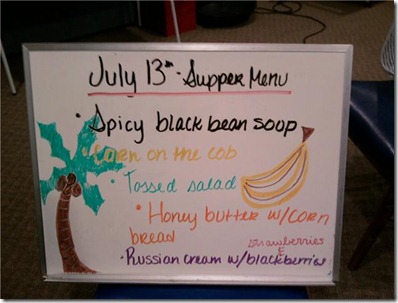 July 13th - Supper Menu
• Spicy black bean soup
• Corn on the cob
• Tossed salad
• Honey butter w/corn
bread
strawberries
&
• Russian cream w/blackberries